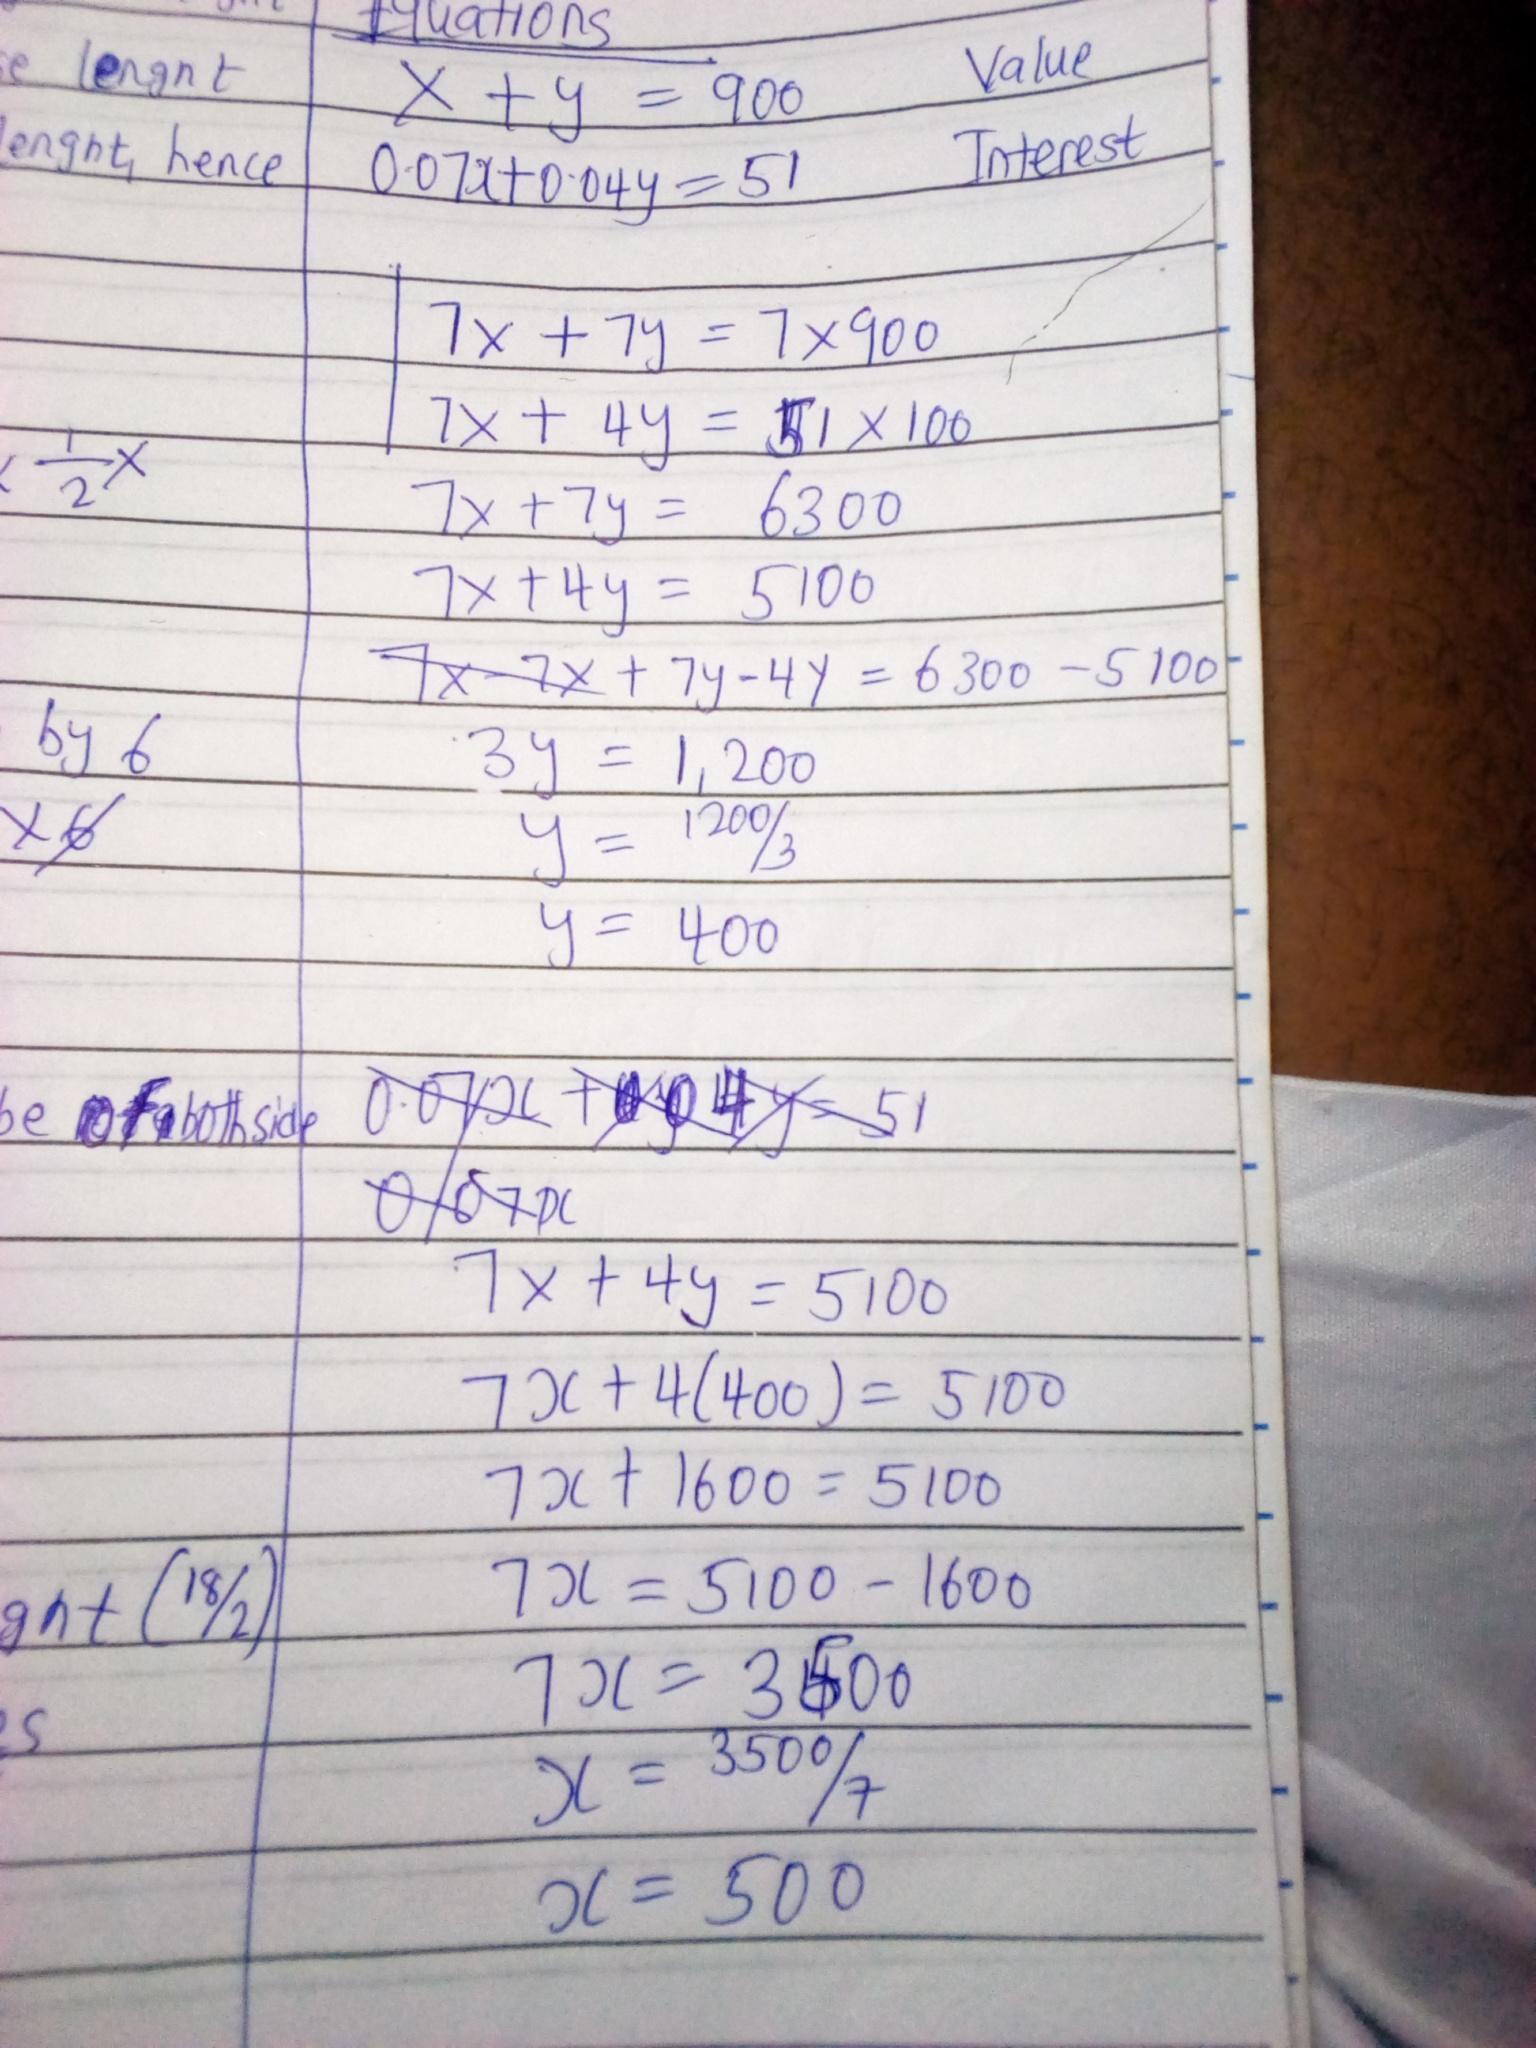 Equations
lengnt
x + y = 900 Value
lengnt, hence
0.07x+0.04y=51 Interest
7x + 7y = 7x900
7x + 4y = 51 x 100
1/2 x
7x + 7y = 6300
7x + 4y = 5100
7x-7x + 7y-4y = 6300 - 5100
by 6
3y = 1,200
x 6
y = 1200/3
y = 400
be of both side
0.07x + 0.04y = 51
0.07x
7x + 4y = 5100
7x + 4(400) = 5100
7x + 1600 = 5100
gnt (18/2)
7x = 5100 - 1600
7x = 3500
x = 3500/7
x = 500